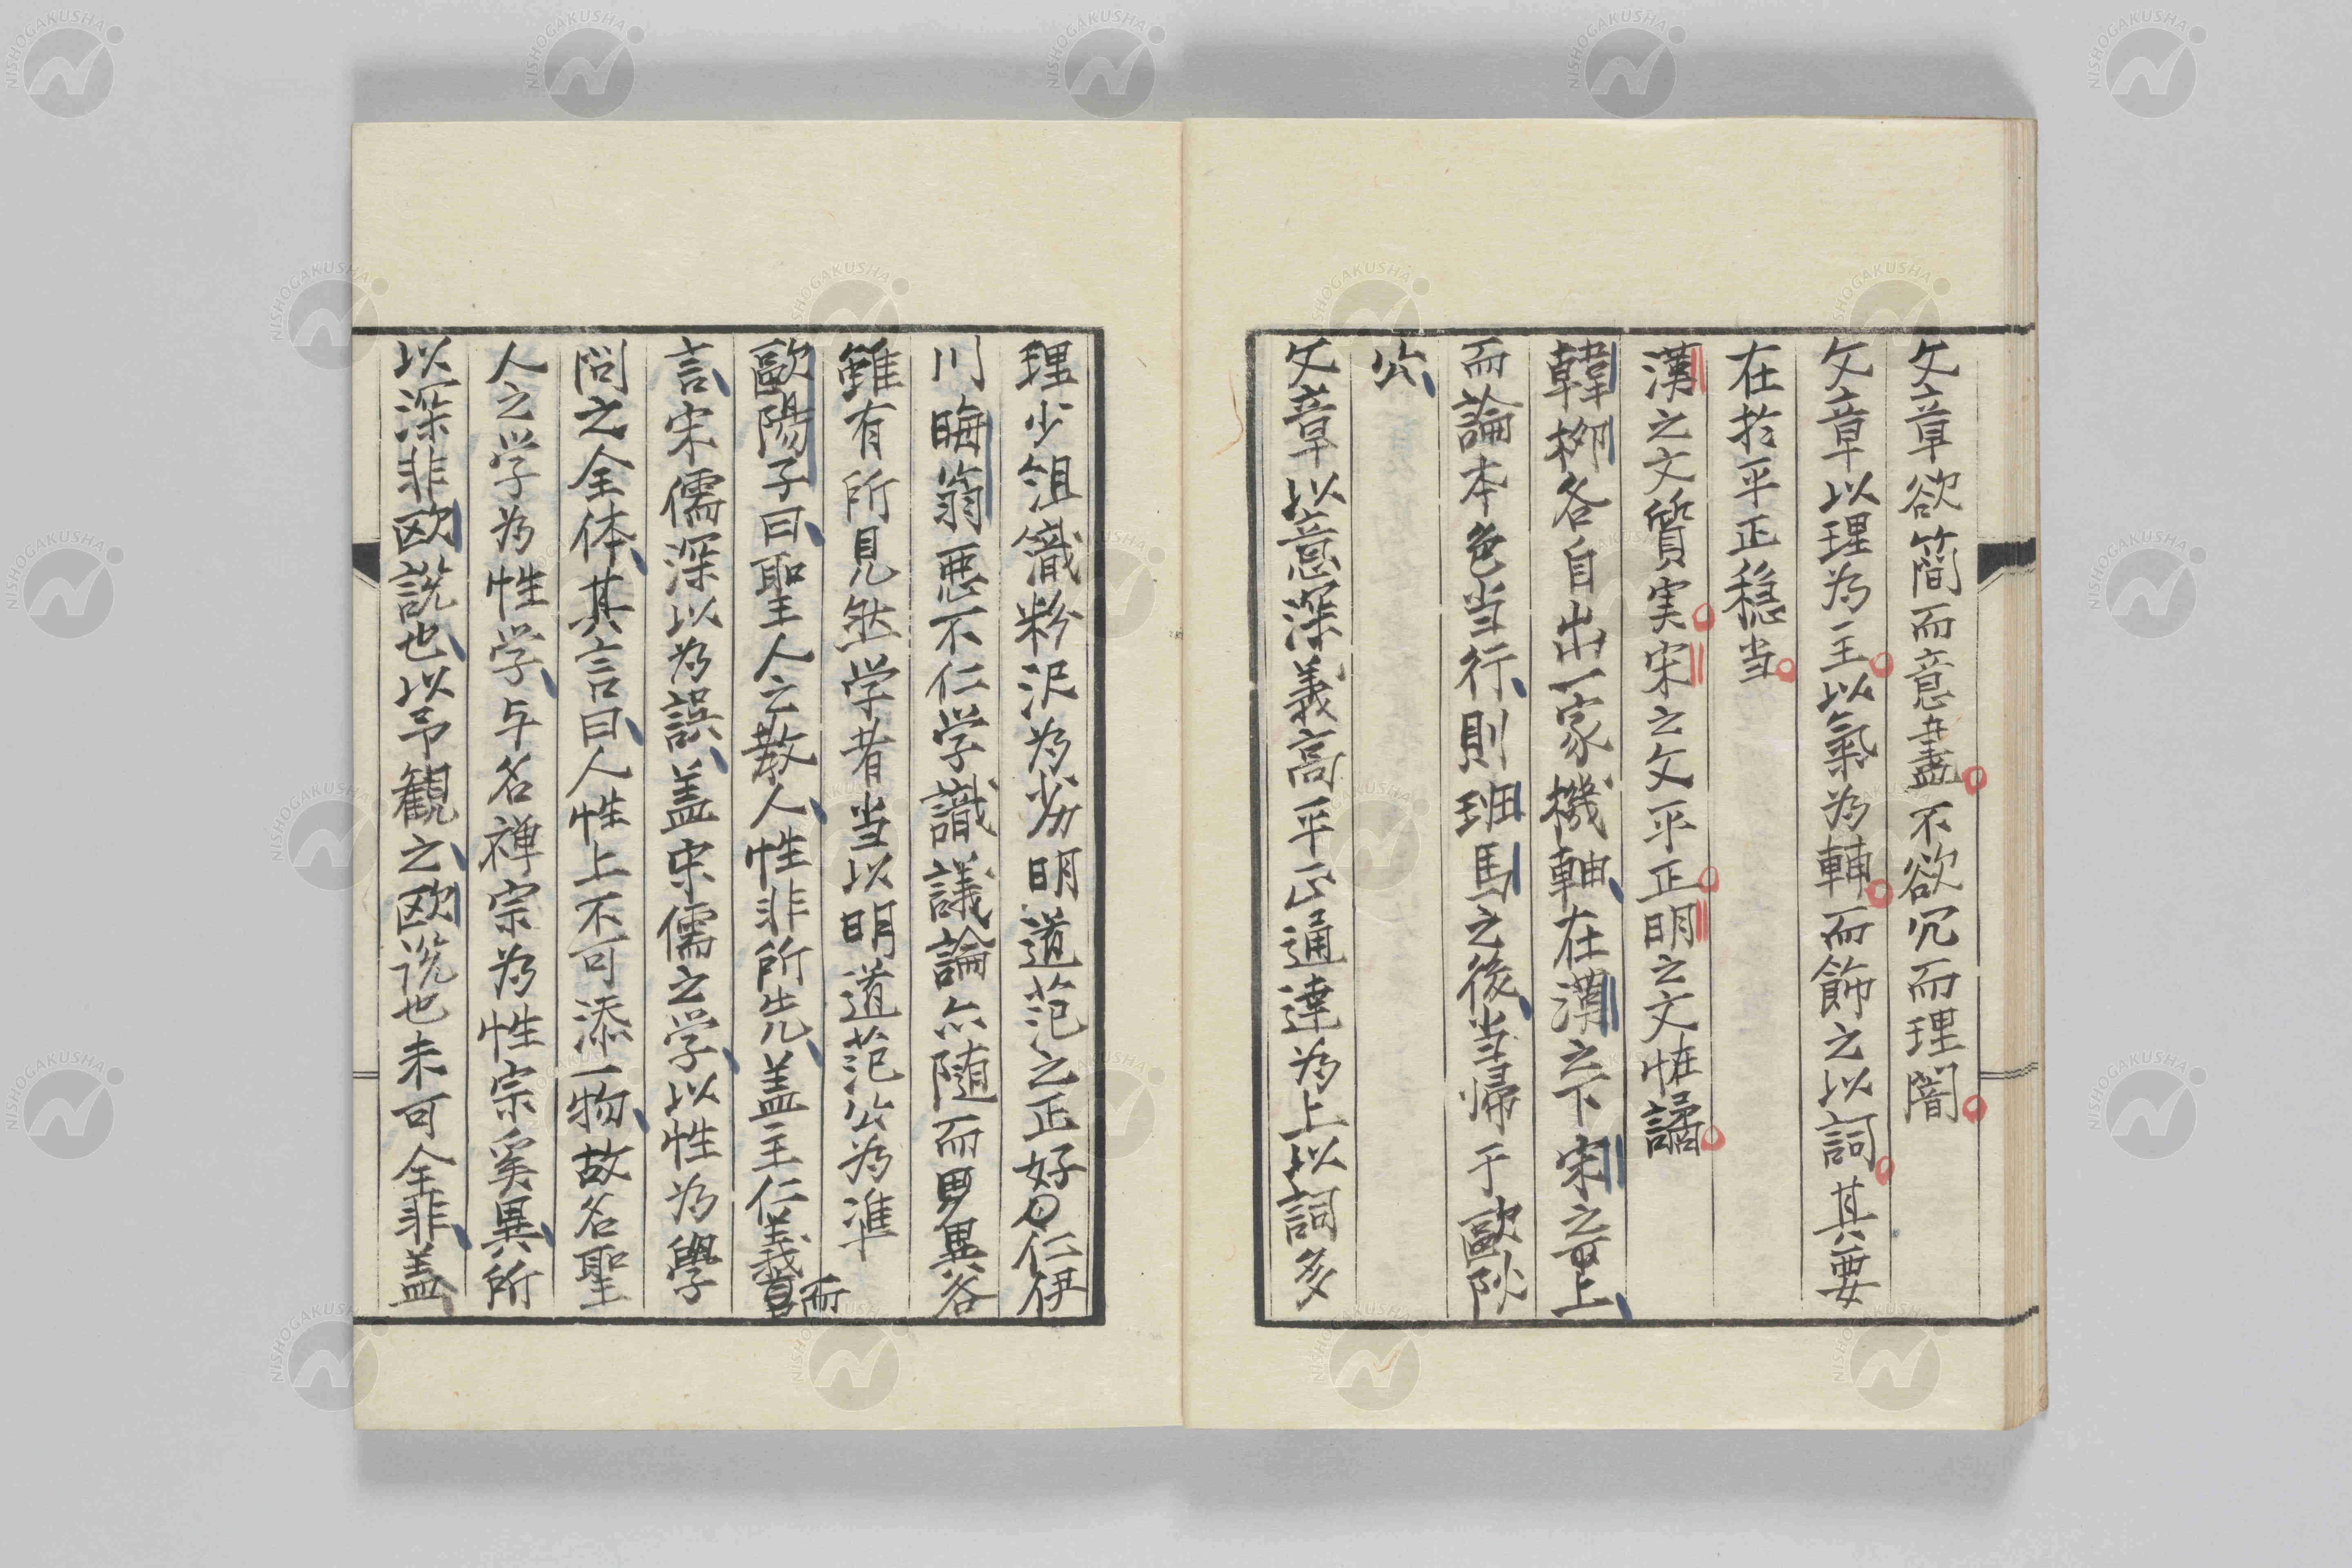 文章欲簡而意盡不欲冗而理闇
文章以理為主以氣為輔而飾之以詞其要
在於平正穏当
漢之文質実宋之文平正明之文怪譎
韓柳各自出一家機軸在漢之下宋之上
而論本色当行則班馬之後当帰于歐陽
公
文章以意深義高平正通達為上以詞多
理少組織粉沢為劣明道范之正好仁伊
川晦翁悪不仁学識議論亦随而異各
雖有所見然学者当以明道范公為準
歐陽子曰聖人之教人性非所先蓋主仁義而
言宋儒深以為誤蓋宋儒之学以性為學
問之全体其言曰人性上不可添一物故名聖
人之学為性学与名禅宗為性宗奚異所
以深非欧説也以予観之欧説也未可全非蓋
NISHOGAKUSHA